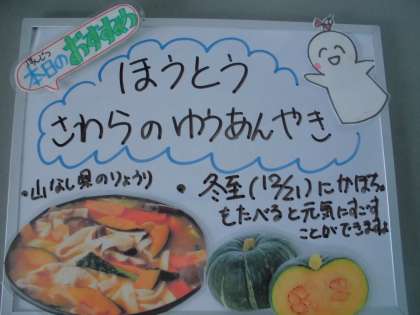 ほんじつ
本日のおすすめ
ほうとう
さわらのゆうあんやき
・山なし県のりょうり
・冬至(12/21)にかぼちゃ
もたべると元気にすごす
ことができますよ